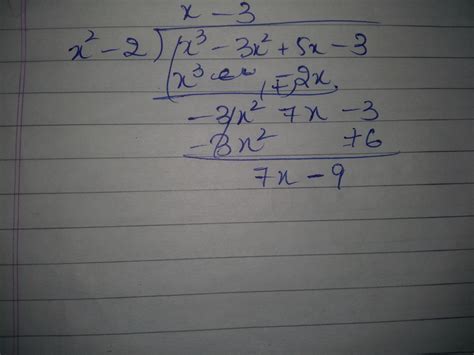 x - 3
x² - 2) x³ - 3x² + 5x - 3
x³ - 2x
- 3x² 7x - 3
- 3x² + 6
7x - 9